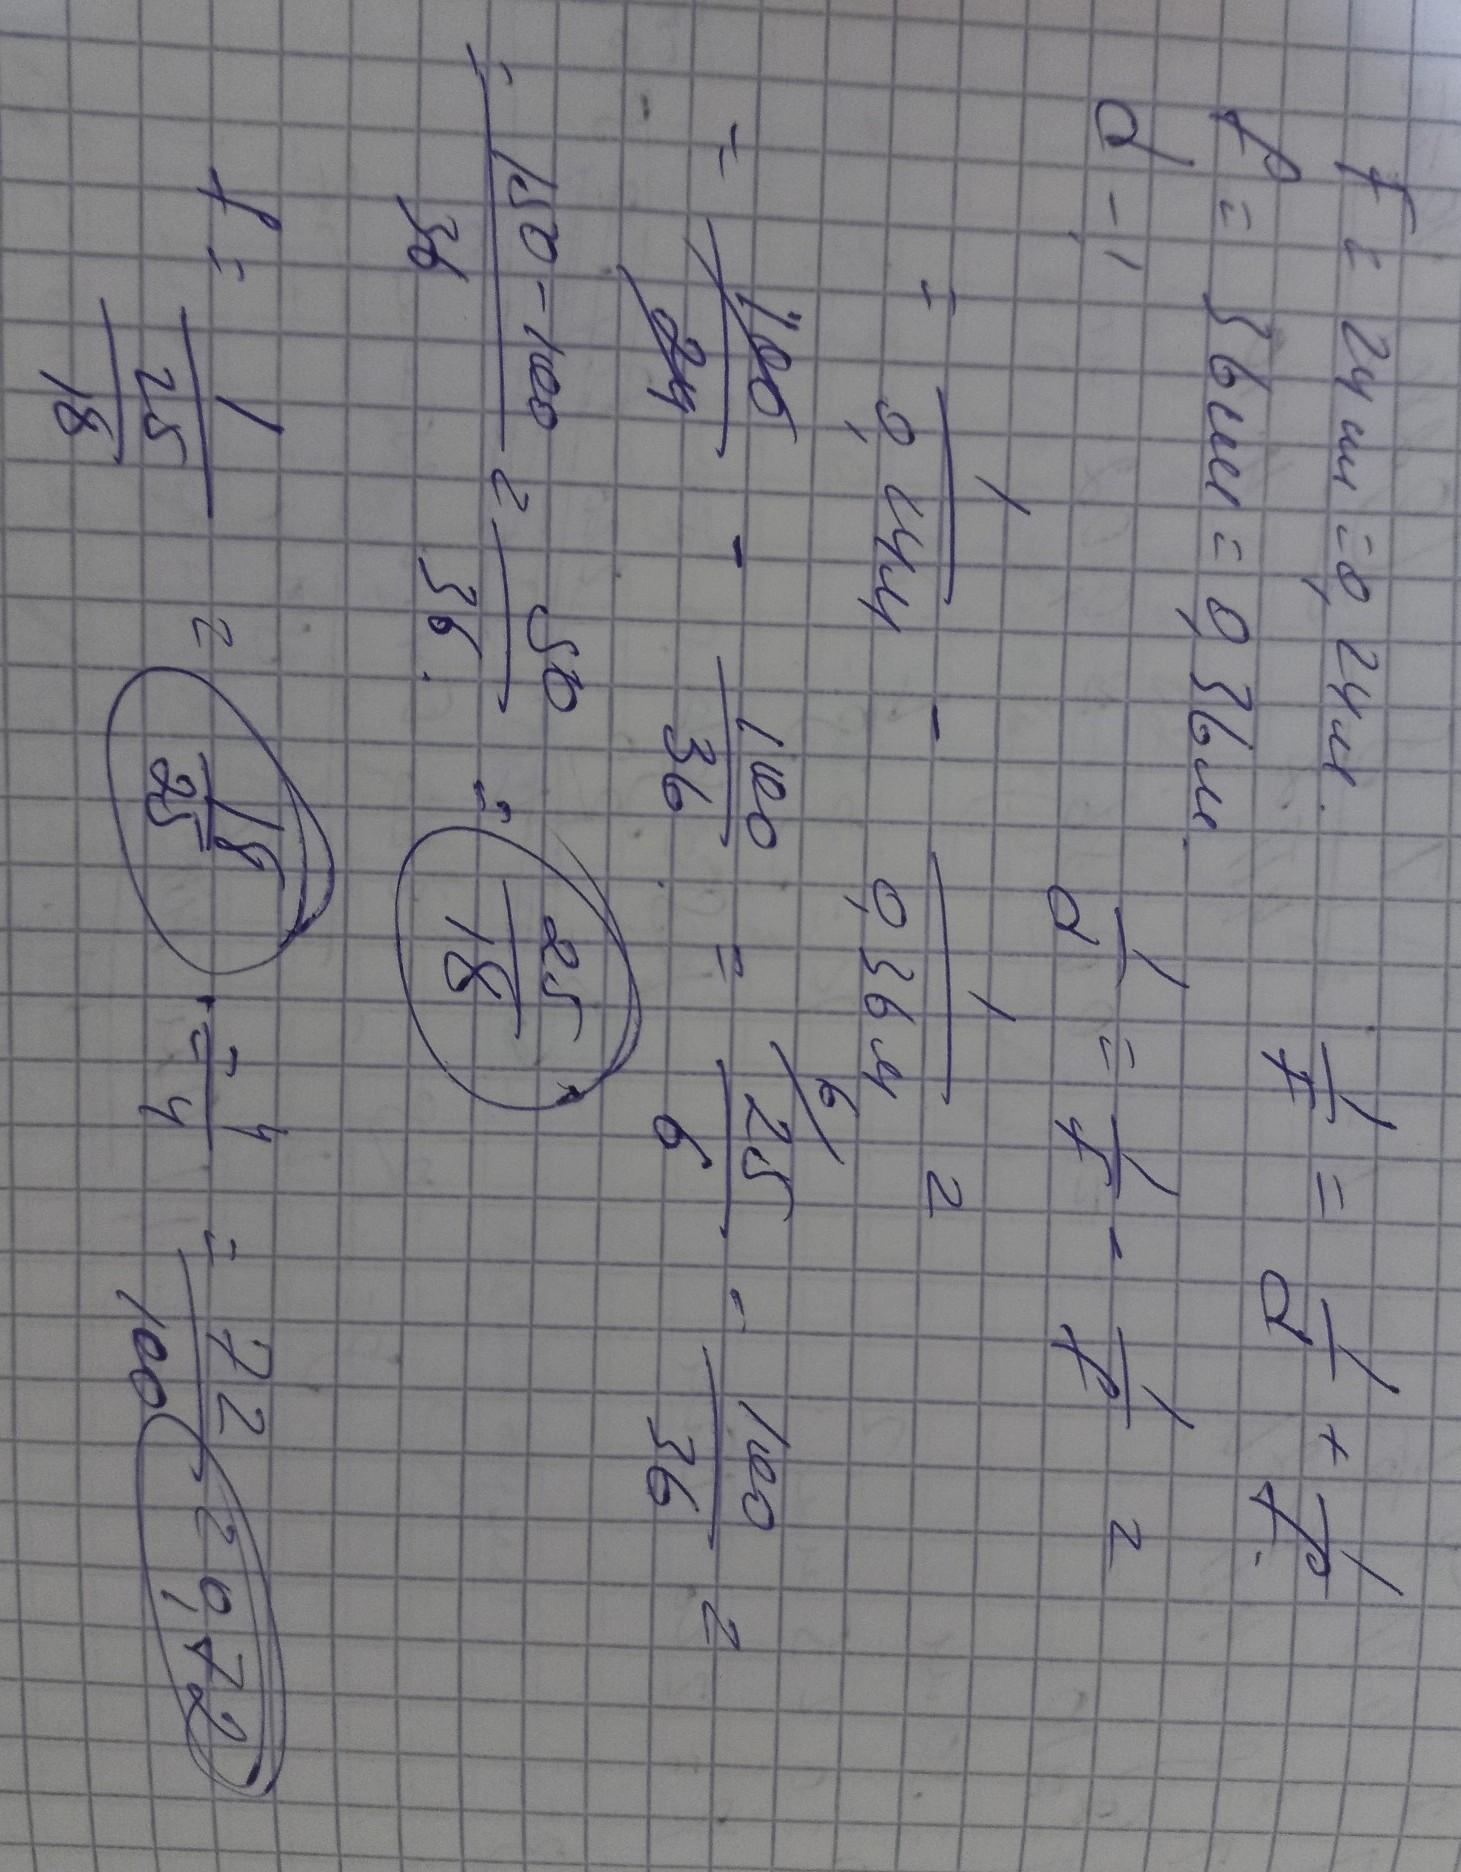 F = 24 см = 0,24 м. 1/F = 1/d + 1/f.
f = 36 см = 0,36 м.
d - ? 1/d = 1/F - 1/f =
= 1/0,24 - 1/0,36 =
= 100/24 - 100/36 = 25/6 - 100/36 =
= 150-100/36 = 50/36 = 25/18
f = 1/25/18 = 18/25 · 4/4 = 72/100 = 0,72